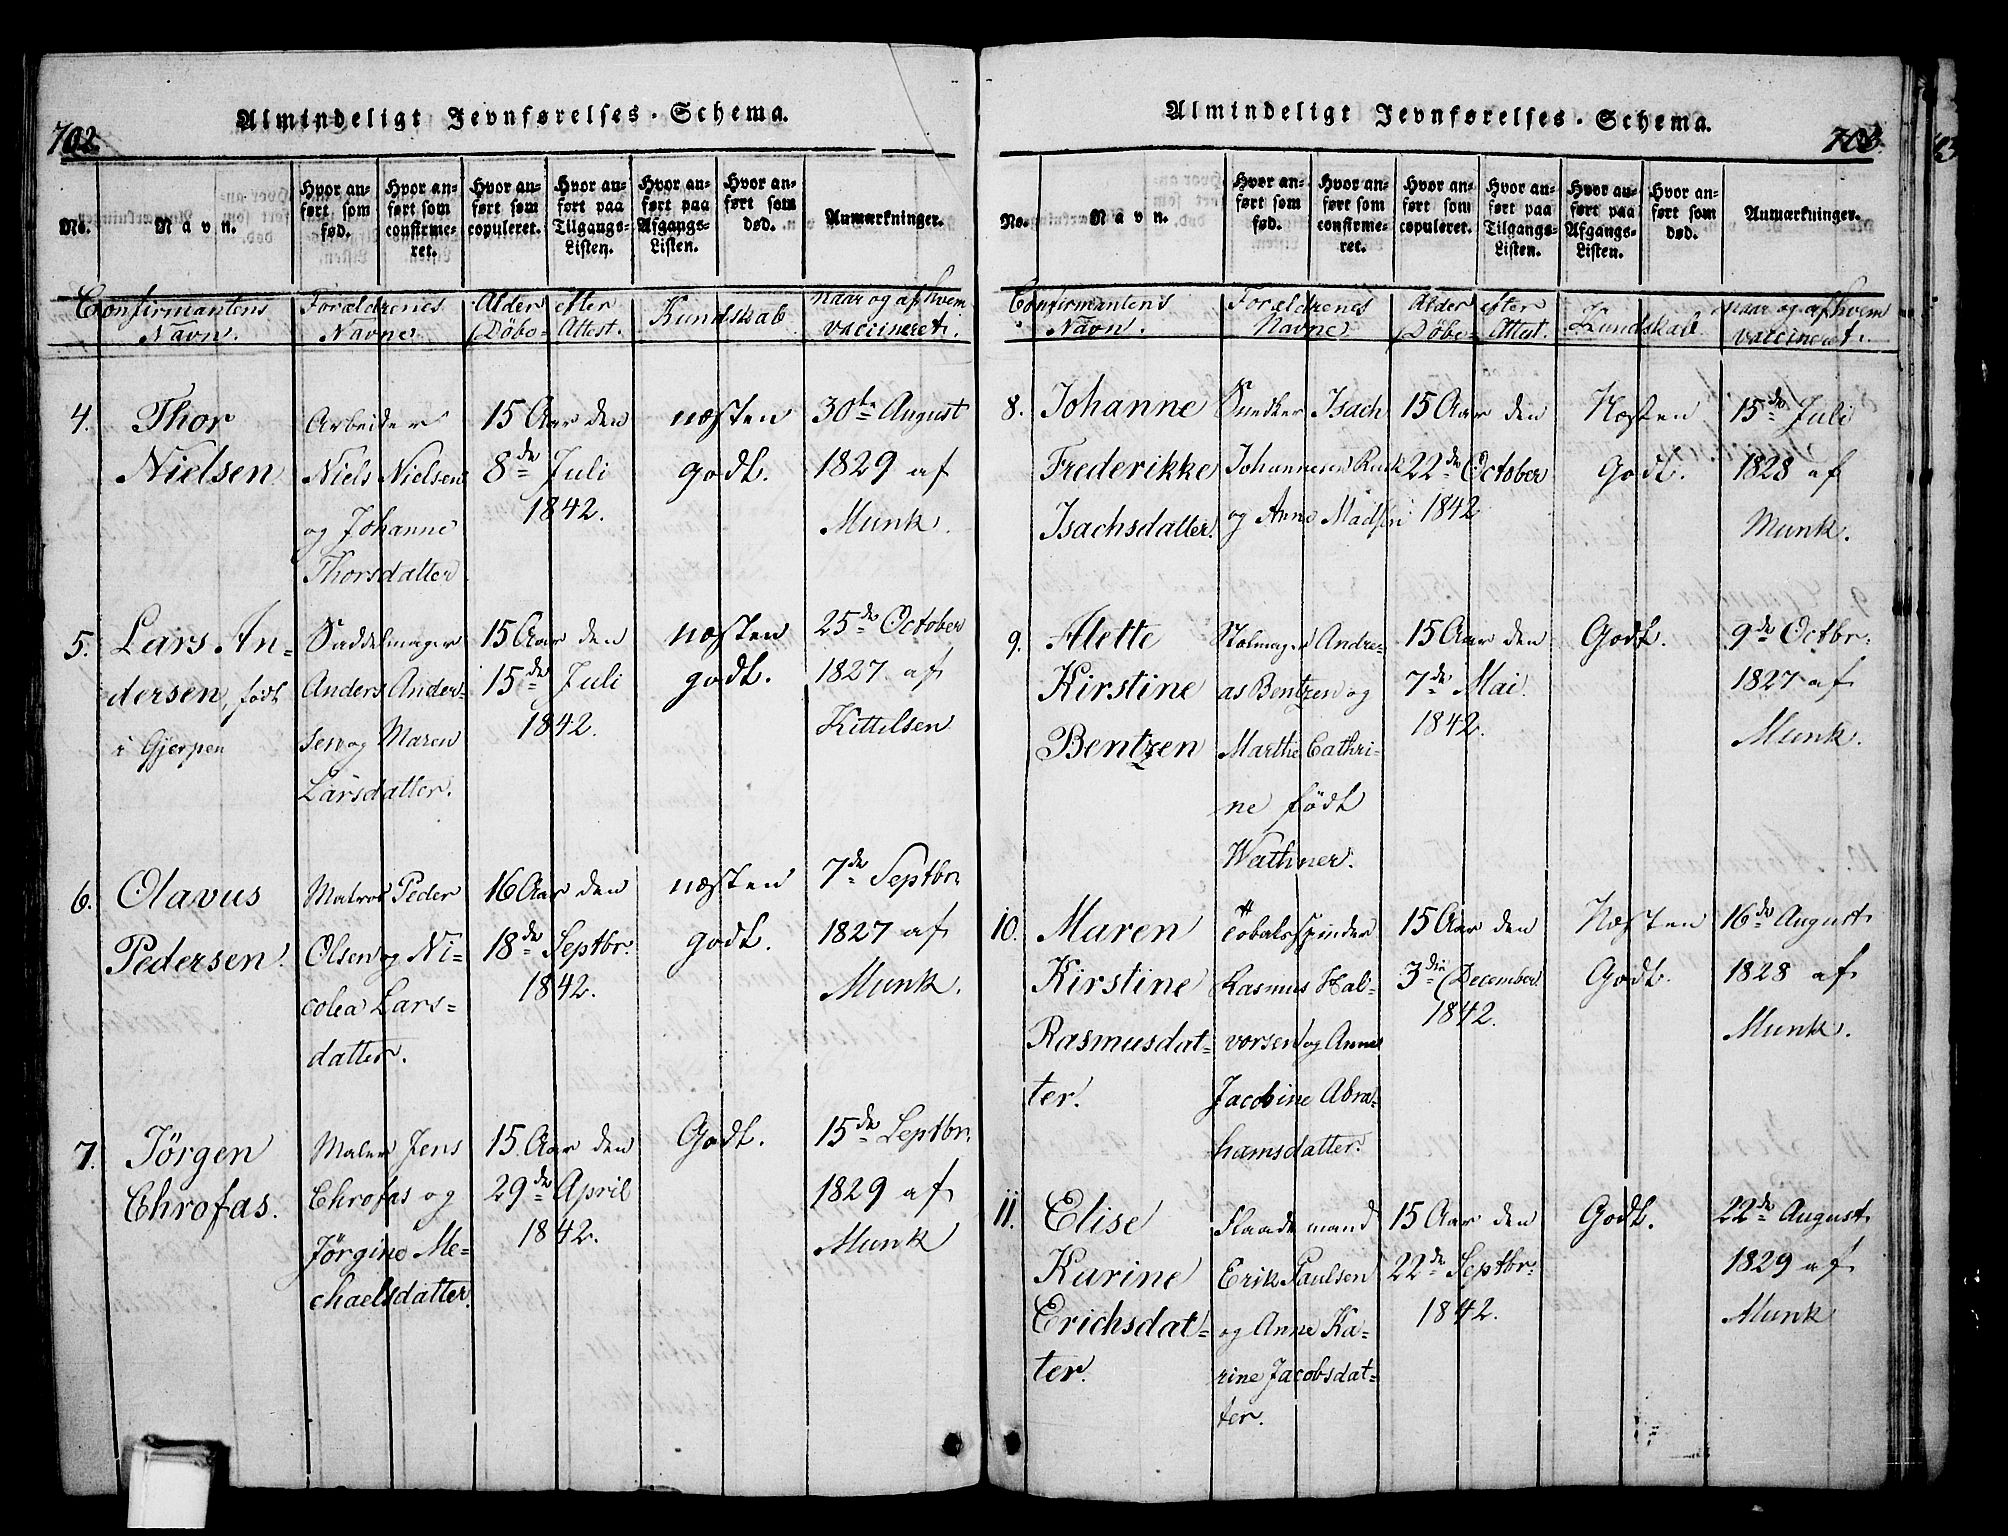 702.
Almindeligt Jevnførelses-Schema.
No.
Navn.
Hvor an-
ført som
fød.
Hvor an-
ført som
confirme-
ret.
Hvor an-
ført som
copuleret.
Hvor an-
ført paa
Tilgangs-
Listen.
Hvor an-
ført paa
Afgangs-
Listen.
Hvor an-
ført som
død.
Anmærkninger.
Confirmantens
Navn.
Forældrenes
Navne
Alder efter
Döbe-Attest.
Kundskab
naar og af hvem
vaccineret.
4.
Thor
Nielsen
Arbeider
Niels Nielsen
og Johanne
Thorsdatter
15 Aar den
8de Juli
1842.
næsten
godt.
30te August
1829 af
Munk.
5.
Lars An=
dersen, født
i Gjerpen
Saddelmager
Anders Ander-
sen og Maren
Larsdatter.
15 Aar den
15de Juli
1842.
næsten
godt.
25de October
1827 af
Kittilsen
6.
Olavus
Pedersen.
Matros Peder
Olsen og Ni-
colea Lars=
datter.
16 Aar den
18de Septbr.
1842.
næsten
godt.
7de Septbr.
1827 af
Munk.
7.
Jörgen
Chrofas.
Maler Jens
Chrofas og
Jörgine Me-
chaelsdatter.
15 Aar den
29de April
1842.
Godt.
15de Septbr.
1829 af
Munk
703.
Almindeligt Jevnførelses-Schema.
No.
Navn.
Hvor an-
ført som
fød.
Hvor an-
ført som
confirme-
ret.
Hvor an-
ført som
copuleret.
Hvor an-
ført paa
Tilgangs-
Listen.
Hvor an-
ført paa
Afgangs-
Listen.
Hvor an-
ført som
død.
Anmærkninger.
Confirmantens
Navn.
Forældrenes
Navne
Alder efter
Döbe-Attest.
Kundskab
naar og af hvem
vaccineret.
8.
Johanne
Frederikke
Isachsdatter.
Isach
Johannesen
og Anne
15 Aar den
22de October
1842
Næsten
Godt.
15de Juli
1828 af
Munk.
9.
Alette
Kirstine
Bentzen
Stolmager Andre-
as Bentzen og
Marthe Cathri-
ne födt
Wathner.
15 Aar den
7de Mai
1842.
Godt.
9de Octbr.
1827 af
Munk.
10.
Maren
Kirstine
Rasmusdat-
ter.
Tobaksspinder
Rasmus Hal-
vorsen og Anne
Jacobine Abra-
hamsdatter.
15 Aar den
3die December
1842.
Næsten
Godt.
16de August
1828 af
Munk.
11.
Elise
Karine
Erichsdat=
ter.
Flaademand
Erik Paulsen
og Anne Ka-
rine Jacobsdat-
ter.
15 Aar den
22de Septbr.
1842.
Godt.
22de August
1829 af
Munk